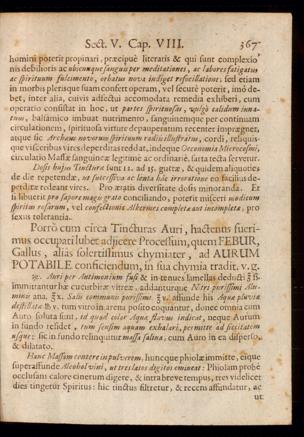 Sect. V. Cap. VIII. 367
homini poterit propinari, præcipuè literatis & qui sunt complexio
nis debilioris ac ubicunque sanguis per meditationes, ac labores fatigatus
ac spirituum fulcimento, orbatus nova indiget refocillatione, sed etiam
in morbis plerisque suam confert operam, vel securè poterit, imò de-
bet, inter alia, cuivis adfectui accomodata remedia exhiberi, cum
operatio consistat in hoc, ut partes spirituosas, vulgò calidum inna-
tum, balsamico imbuat nutrimento, sanguinemque per continuam
circulationem, spirituosâ virtute depauperatum recenter imprægnet,
atque sic Archeus novorum spirituum radiis illustratus, cordi, reliquis-
que visceribus vires deperditas reddat, indeque Oeconomia Microcosmi,
circulatio Massæ sanguineæ legitimè ac ordinariè, sarta tecta servetur.
Dosis hujus Tincturæ sunt 11. ad 15. guttæ, & quidem aliquoties
de die repetendæ, ut successiva ac lenta hâc irroratione eo facilius de-
perditæ redeant vires. Pro ætatis diversitate dosis minoranda. Et
si libuerit pro sapore magis grato conciliando, poterit misceri modicum
spiritus rosarum, vel confectionis Alkermes completæ aut incompletæ, pro
sexus tolerantia.
Porrò cum circa Tincturas Auri, hactenus fueri-
mus occupati lubet adjicere Processum, quem FEBUR,
Gallus, aliàs solertissimus chymiater, ad AURUM
POTABILE conficiendum, in sua chymia tradit, v. g.
℞. Auri per Antimonium fusi & in tenues lamellas deducti ℥ß.
immittantur hæ cucurbitæ vitreæ, addanturque Nitri purissimi Alu-
minis ana. ℥x. Salis communis purissimi ℥v. affunde his Aquæ pluviæ
destillatæ ℔v. tum vitro in arena posito coquantur, donec omnia cum
Auro soluta sunt, id quod color Aquæ flavus indicat, neque Aurum
in fundo residet, tum sensim aquam exhalari, permitte ad siccitatem
usque: sic in fundo relinquitur massa salina, cum Auro in ea disperso,
& dilatato.
Hanc Massam contere in pulverem, huncque phiolæ immitte, eique
superaffunde Alcohol vini, ut tres latos digitos emineat: Phiolam probè
occlusam calore cinerum digere, & intra breve tempus, tres videlicet
dies tingetur Spiritus: hic tinctus filtretur, & recens affundatur, ac
ut